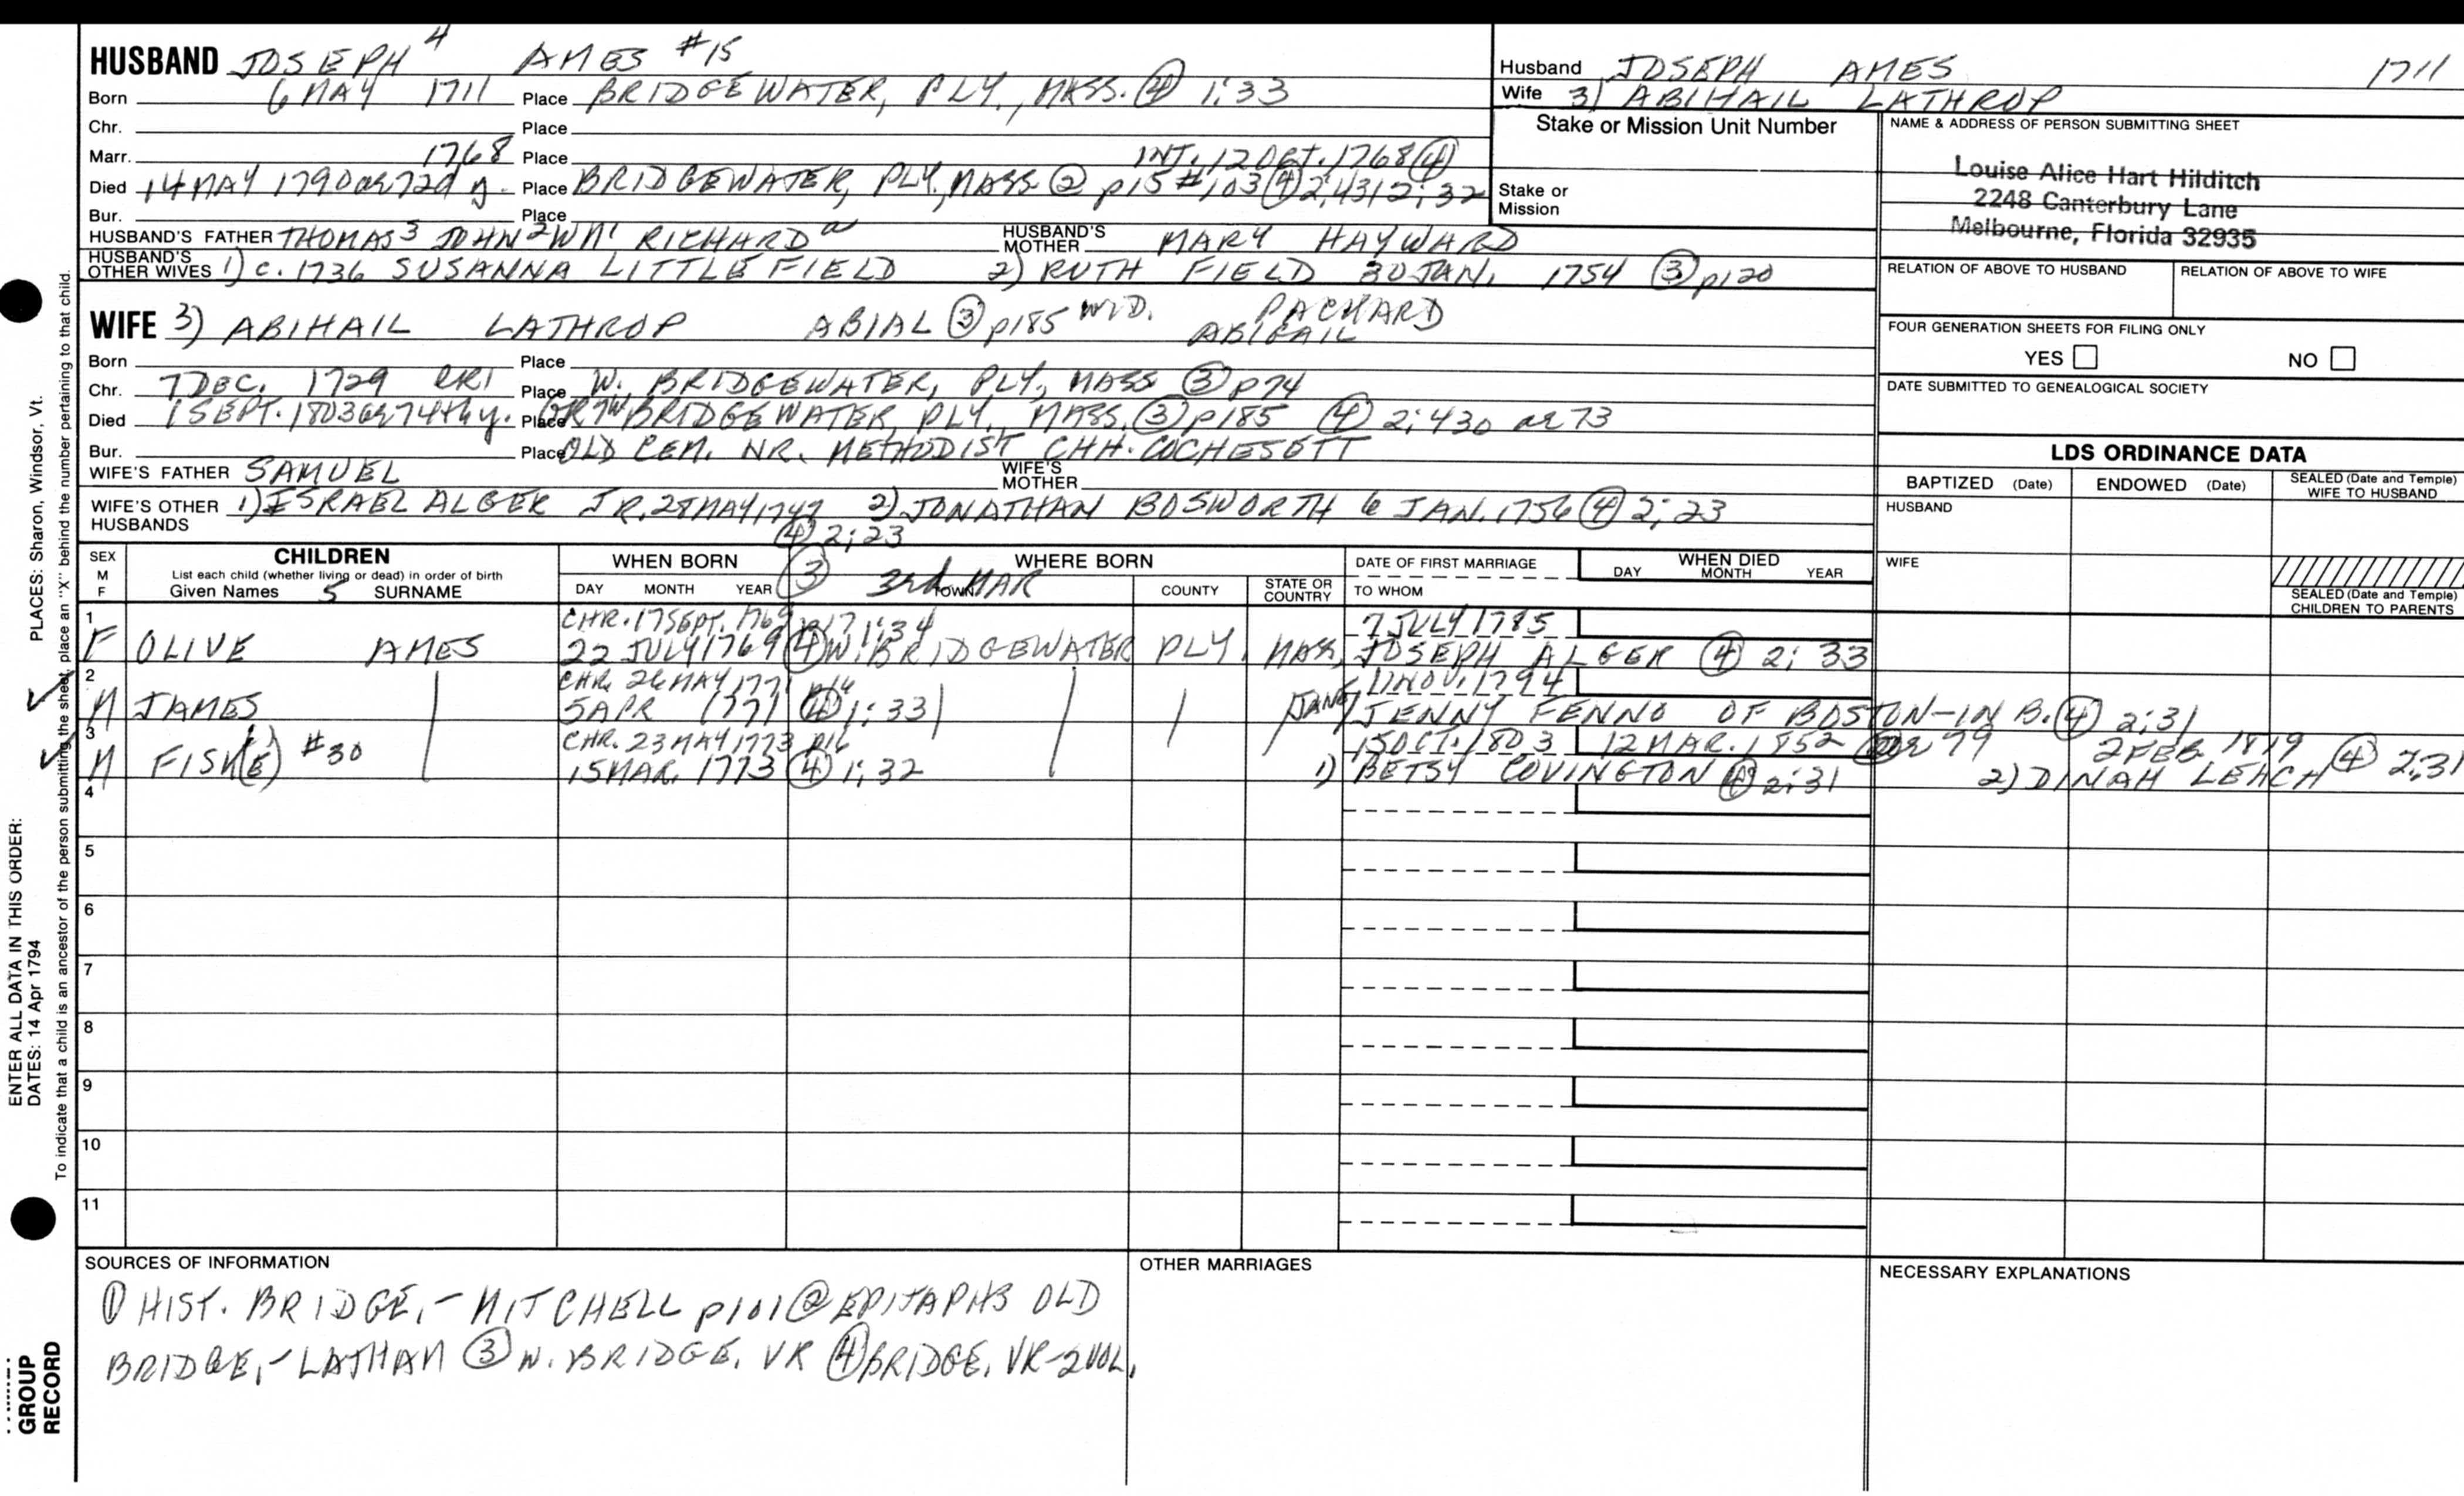 HUSBAND JOSEPH 4 AMES #15
Born 6 MAY 1711 Place BRIDGEWATER, PLY., MASS. ④ 1:33
Chr. Place
Marr. 1768 Place INT. 12 OCT. 1768 ④
Died 14 MAY 1790 ae 72d y. Place BRIDGEWATER, PLY, MASS ② p15 #103 ④ 2:431 2:32
Bur. Place
HUSBAND'S FATHER THOMAS 3 JOHN 2 WM 1 RICHARD a HUSBAND'S MOTHER MARY HAYWARD
HUSBAND'S OTHER WIVES 1) C. 1736 SUSANNA LITTLEFIELD 2) RUTH FIELD 30 JAN. 1754 ③ p120
WIFE 3) ABIHAIL LATHROP ABIAL ③ p185 WID. PACKARD
ABIGAIL
Born Place
Chr. 7 DEC. 1729 CR1 Place W. BRIDGEWATER, PLY, MASS ③ p74
Died 1 SEPT. 1803 ae 74th y. Place GR7 W BRIDGEWATER, PLY., MASS. ③ p185 ④ 2:430 ae 73
Bur. Place OLD CEM. NR. METHODIST CHH. COCHESETT
WIFE'S FATHER SAMUEL WIFE'S MOTHER
WIFE'S OTHER HUSBANDS 1) ISRAEL ALGER JR. 28 MAY 1747 2) JONATHAN BOSWORTH 6 JAN. 1756 ④ 2:23
④ 2:23
Husband JOSEPH AMES 1711
Wife 3) ABIHAIL LATHROP
Stake or Mission Unit Number
Stake or Mission
NAME & ADDRESS OF PERSON SUBMITTING SHEET
Louise Alice Hart Hilditch
2248 Canterbury Lane
Melbourne, Florida 32935
RELATION OF ABOVE TO HUSBAND RELATION OF ABOVE TO WIFE
FOUR GENERATION SHEETS FOR FILING ONLY
YES NO
DATE SUBMITTED TO GENEALOGICAL SOCIETY
LDS ORDINANCE DATA
BAPTIZED (Date) ENDOWED (Date) SEALED (Date and Temple) WIFE TO HUSBAND
HUSBAND
WIFE
SEALED (Date and Temple) CHILDREN TO PARENTS
SEX M F
CHILDREN
List each child (whether living or dead) in order of birth
Given Names 5 SURNAME
WHEN BORN
DAY MONTH YEAR
③ 3rd MAR
WHERE BORN
TOWN COUNTY STATE OR COUNTRY
DATE OF FIRST MARRIAGE
TO WHOM
WHEN DIED
DAY MONTH YEAR
1 CHR. 17 SEPT. 1769 p17 1:34 7 JULY 1785
F OLIVE AMES 22 JULY 1769 ④ W. BRIDGEWATER PLY. MASS. JOSEPH ALGER ④ 2:33
2 CHR. 26 MAY 1771 p16 11 NOV. 1794
M JAMES 5 APR 1771 ④ 1:33 JANE/ JENNY FENNO OF BOSTON-IN B. ④ 2:31
3 CHR. 23 MAY 1773 p16 15 OCT. 1803 12 MAR. 1852 ae 79 2 FEB. 1819
M FISK(E) #30 15 MAR. 1773 ④ 1:32 1) BETSY COVINGTON ④ 2:31 2) DINAH LEACH ④ 2:31
4
5
6
7
8
9
10
11
SOURCES OF INFORMATION
① HIST. BRIDGE,- MITCHELL p101 ② EPITAPHS OLD
BRIDGE,- LATHAM ③ W. BRIDGE. VR ④ BRIDGE. VR-2 VOL.
OTHER MARRIAGES
NECESSARY EXPLANATIONS
ENTER ALL DATA IN THIS ORDER:
DATES: 14 Apr 1794 PLACES: Sharon, Windsor, Vt.
To indicate that a child is an ancestor of the person submitting the sheet, place an "X" behind the number pertaining to that child.
GROUP
RECORD